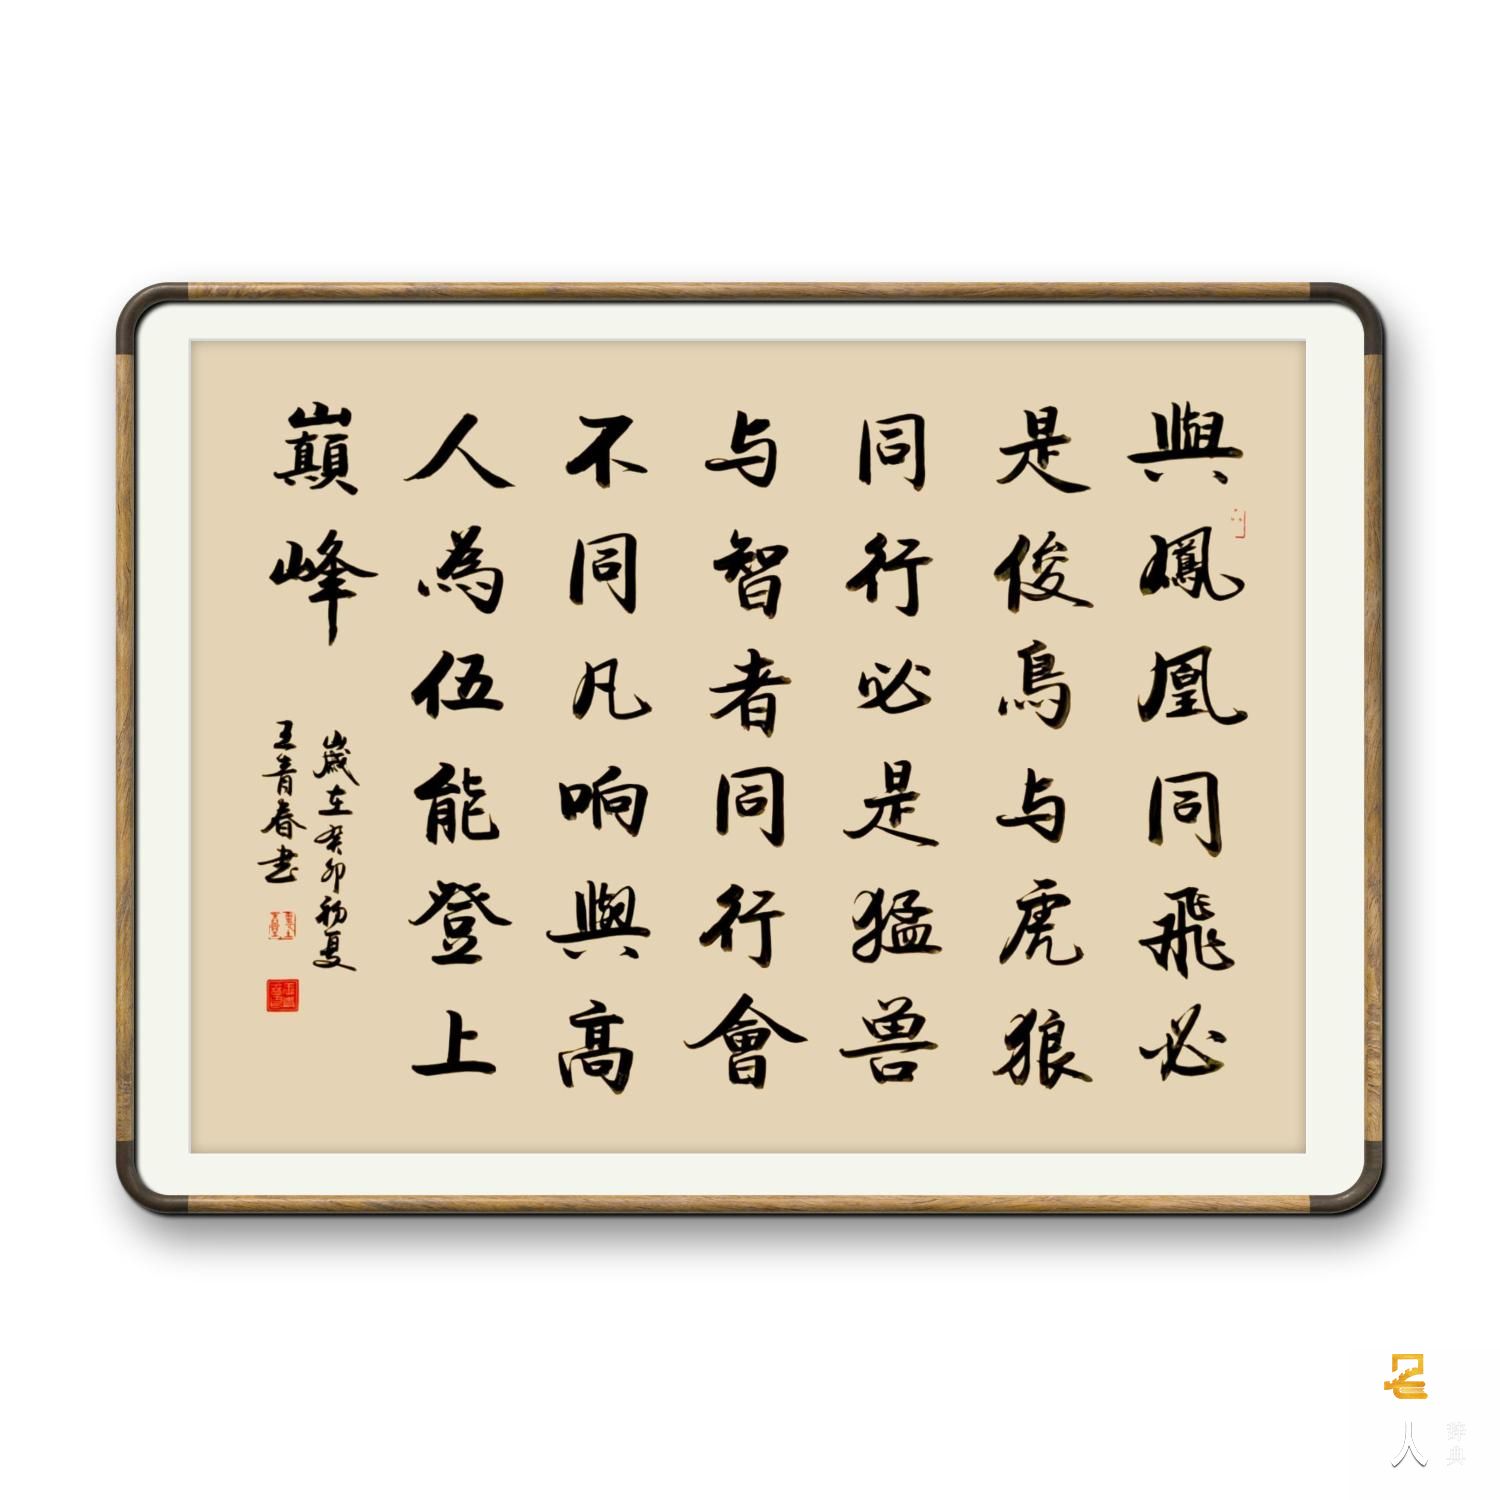 與鳳凰同飛必
是俊鳥与虎狼
同行必是猛兽
与智者同行會
不同凡响與高
人為伍能登上
巅峰
歲在癸卯初夏
王青春书
人
辞典